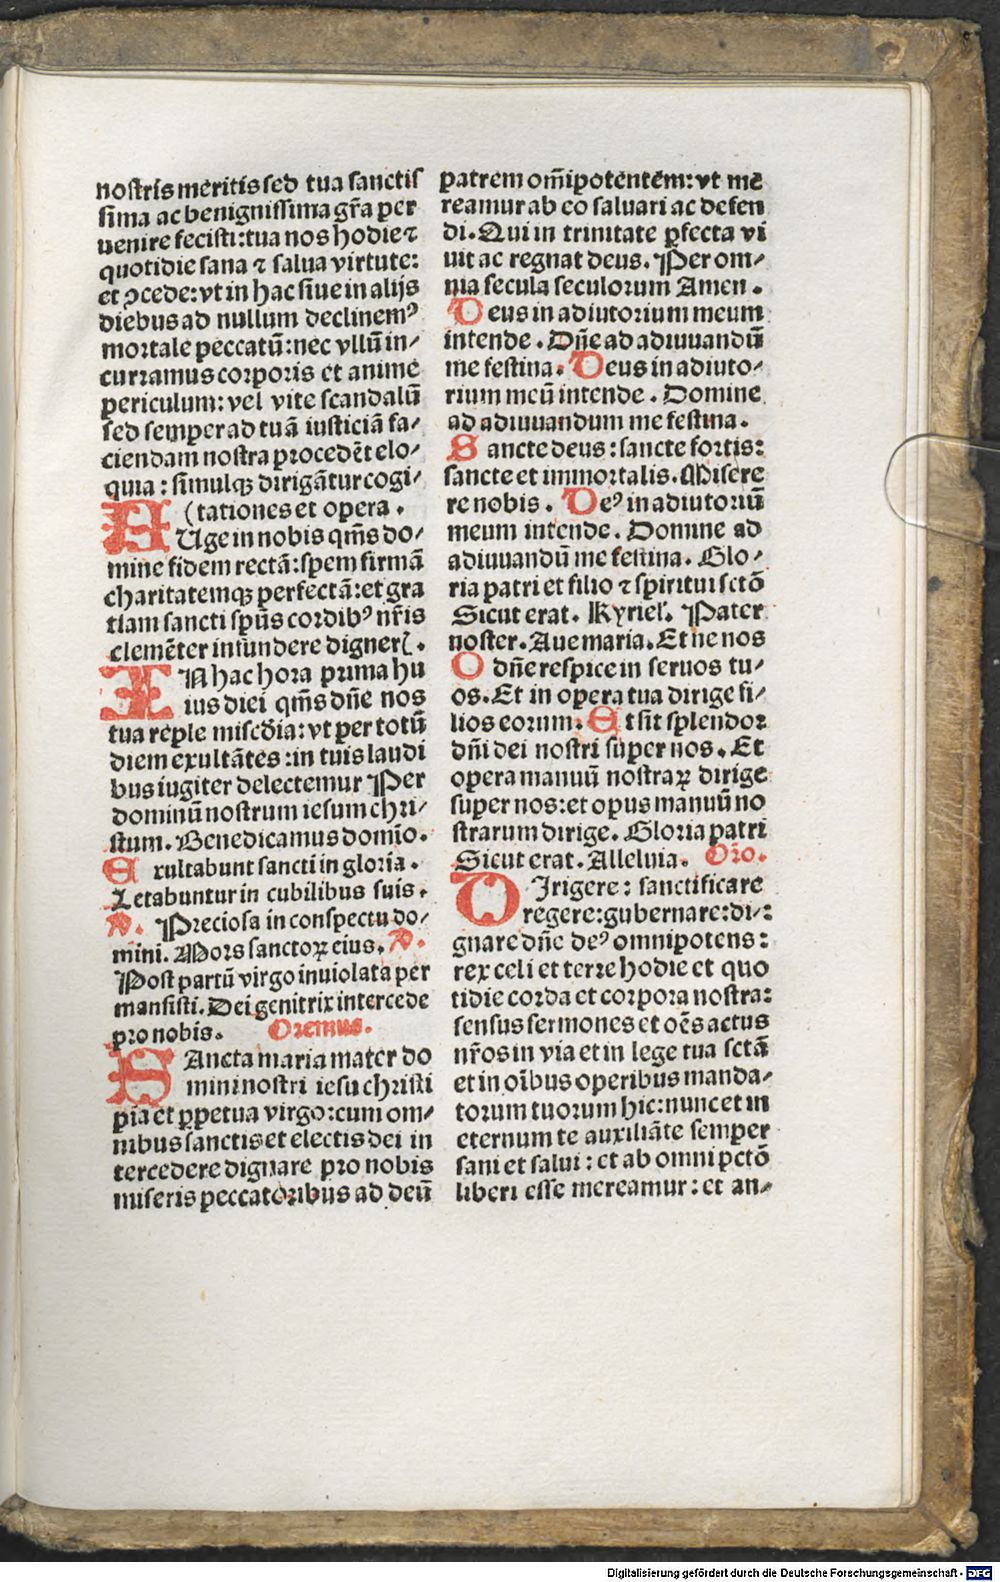 nostris meritis sed tua sanctis
sima ac benignissima gr̃a per
uenire fecisti: tua nos hodie ⁊
quotidie sana ⁊ salua virtute:
et ꝓcede: vt in hac siue in alijs
diebus ad nullum declinemꝰ
mortale peccatū: nec vllū in-
curramus corporis et anime
periculum: vel vite scandalū
sed semper ad tuā iusticiā fa-
ciendam nostra procedēt elo-
quia: simulqꝫ dirigātur cogi-
(tationes et opera.
AUge in nobis qm̃s do-
mine fidem rectā: spem firmā
charitatemqꝫ perfectā: et gra
tiam sancti sp̃us cordibꝰ nr̃is
clemēter infundere digneris.
IN hac hora prima hu
ius diei qm̃s dn̄e nos
tua reple misc̃dia: vt per totū
diem exultātes: in tuis laudi
bus iugiter delectemur Per
dominū nostrum iesum chri-
stum. Benedicamus domīo.
Exultabunt sancti in gloria.
Letabuntur in cubilibus suis.
A. Preciosa in conspectu do-
mini. Mors sanctoꝝ eius. A.
Post partū virgo inuiolata per
mansisti. Dei genitrix intercede
pro nobis. Oremus.
SAncta maria mater do
mini nostri iesu christi
pia et ꝑpetua virgo: cum om-
nibus sanctis et electis dei in
tercedere dignare pro nobis
miseris peccatoribus ad deū
patrem om̄ipotentem: vt me
reamur ab eo saluari ac defen
di. Qui in trinitate ꝑfecta vi
uit ac regnat deus. Per om-
nia secula seculorum Amen.
Deus in adiutorium meum
intende. Dn̄e ad adiuuandū
me festina. Deus in adiuto-
rium meū intende. Domine
ad adiuuandum me festina.
Sancte deus: sancte fortis:
sancte et immortalis. Misere
re nobis. Deꝰ in adiutoriū
meum intende. Domine ad
adiuuandū me festina. Glo-
ria patri et filio ⁊ spiritui sctō
Sicut erat. Kyriel. Pater
noster. Aue maria. Et ne nos
O dn̄e respice in seruos tu-
os. Et in opera tua dirige fi-
lios eorum. Et sit splendor
dn̄i dei nostri super nos. Et
opera manuū nostraꝝ dirige
super nos: et opus manuū no
strarum dirige. Gloria patri
Sicut erat. Alleluia. Or̃o.
DIrigere: sanctificare
regere: gubernare: di-:
gnare dn̄e deꝰ omnipotens:
rex celi et terre hodie et quo
tidie corda et corpora nostra:
sensus sermones et oēs actus
nr̃os in via et in lege tua sctā
et in oībus operibus manda-
torum tuorum hic: nunc et in
eternum te auxiliāte semper
sani et salui: et ab omni pctō
liberi esse mereamur: et an-
Digitalisierung gefördert durch die Deutsche Forschungsgemeinschaft - DFG